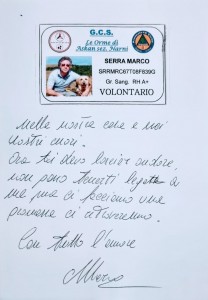 G.C.S.
Le Orme di
Askan sez. Narni
SERRA MARCO
SRRMRC67T08F839G
Gr. Sang. RH A+
VOLONTARIO
nella nostra casa e nei
nostri cuori.
Ora ti devo lasciar andare,
non posso tenerti legata a
me ma ci facciamo una
promessa ci ritroveremo.
Con tutto l'amore
Marco